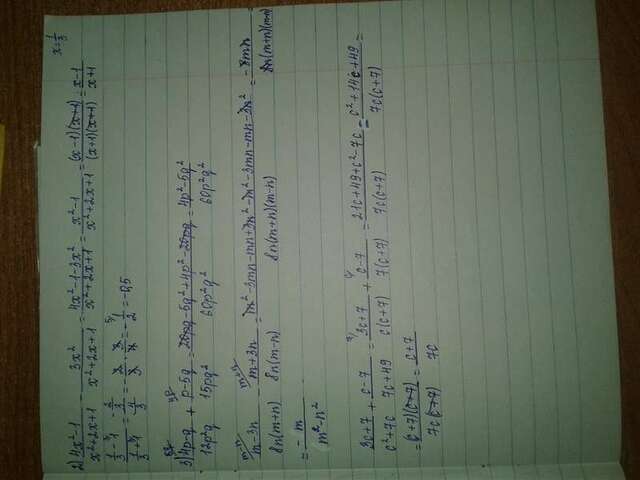 x=1/3
2) (4x²-1)/(x²+2x+1) - (3x²)/(x²+2x+1) = (4x²-1-3x²)/(x²+2x+1) = (x²-1)/(x²+2x+1) = ((x-1)(x+1))/((x+1)(x+1)) = (x-1)/(x+1)
(1/3 - 1)/(1/3 + 1) = (-2/3)/(4/3) = -2/3 · 3/4 = -1/2 = -0,5
3) (4p-q)/(12p²q) + (p-5q)/(15pq²) = (20pq-5q²+4p²-20pq)/(60p²q²) = (4p²-5q²)/(60p²q²)
(m-3n)/(8n(m+n)) - (m+3n)/(8n(m-n)) = (m²-3mn-mn+3n²-m²-3mn-mn-3n²)/(8n(m+n)(m-n)) = (-8mn)/(8n(m+n)(m-n)) =
= (-m)/(m²-n²)
(3c+7)/(c²+7c) + (c-7)/(7c+49) = (3c+7)/(c(c+7)) + (c-7)/(7(c+7)) = (21c+49+c²-7c)/(7c(c+7)) = (c²+14c+49)/(7c(c+7)) =
= ((c+7)(c+7))/(7c(c+7)) = (c+7)/(7c)